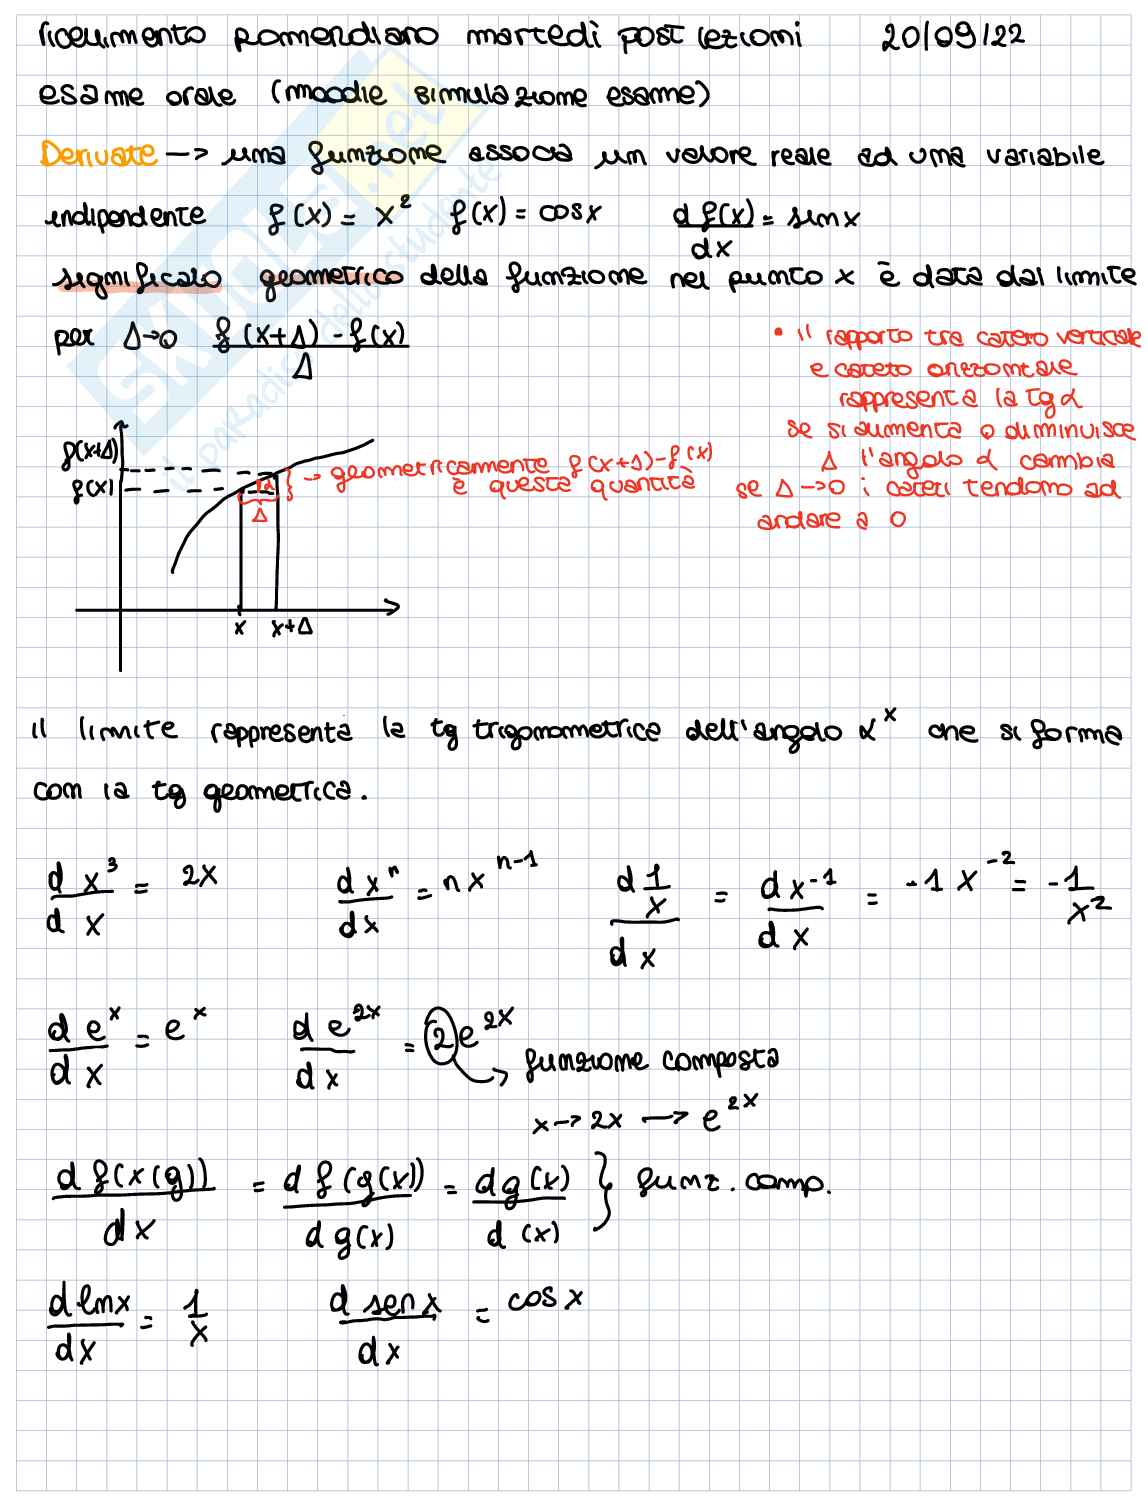 ricevimento pomeridiano martedì post lezioni 20/09/22
esame orale (moodle simulazione esame)
Derivate —> una funzione associa un valore reale ad una variabile
indipendente f(x) = x² f(x) = cosx df(x)/dx = sinx
significato geometrico della funzione nel punto x è data dal limite
per Δ→0 f(x+Δ) - f(x) / Δ
• il rapporto tra cateto verticale
e cateto orizzontale
rappresenta la tg α
se si aumenta o diminuisce
Δ l'angolo α cambia
se Δ→0 i cateti tendono ad
andare a 0
f(x+Δ)
f(x)
→ geometricamente f(x+Δ) - f(x)
è questa quantità
α
Δ
x x+Δ
il limite rappresenta la tg trigonometrica dell'angolo α^x che si forma
con la tg geometrica.
d x³/d x = 2x d xⁿ/dx = n x^(n-1) d 1/x / dx = d x⁻¹/d x = -1 x⁻² = -1/x²
d e^x/d x = e^x d e^2x/dx = 2e^2x
→ funzione composta
x → 2x → e^2x
d f(x(g))/dx = d f(g(x))/d g(x) = dg(x)/d(x) } funz. comp.
d lnx/dx = 1/x d senx/dx = cosx
SKUOLA.net
il paradiso dello studente